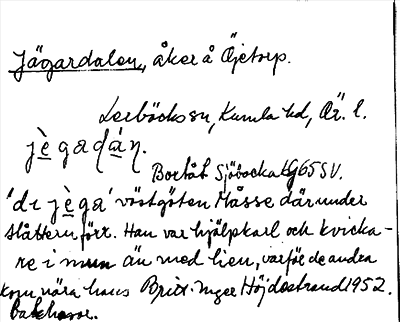 Jägardalen, åker å Öjetorp.
Lerbäcks sn, Kumla hd, Ör. l.
jègadáṇ.
Bortåt Sjöbocka G65 SV.
'dɩ jèga' västgöten Måsse där under
slåttern förr. Han var hjälpkarl och kvicka-
re i mun än med lien, varför de andra
kom nära hans Britt-Inger Höjdestrand 1952.
bakhasor.